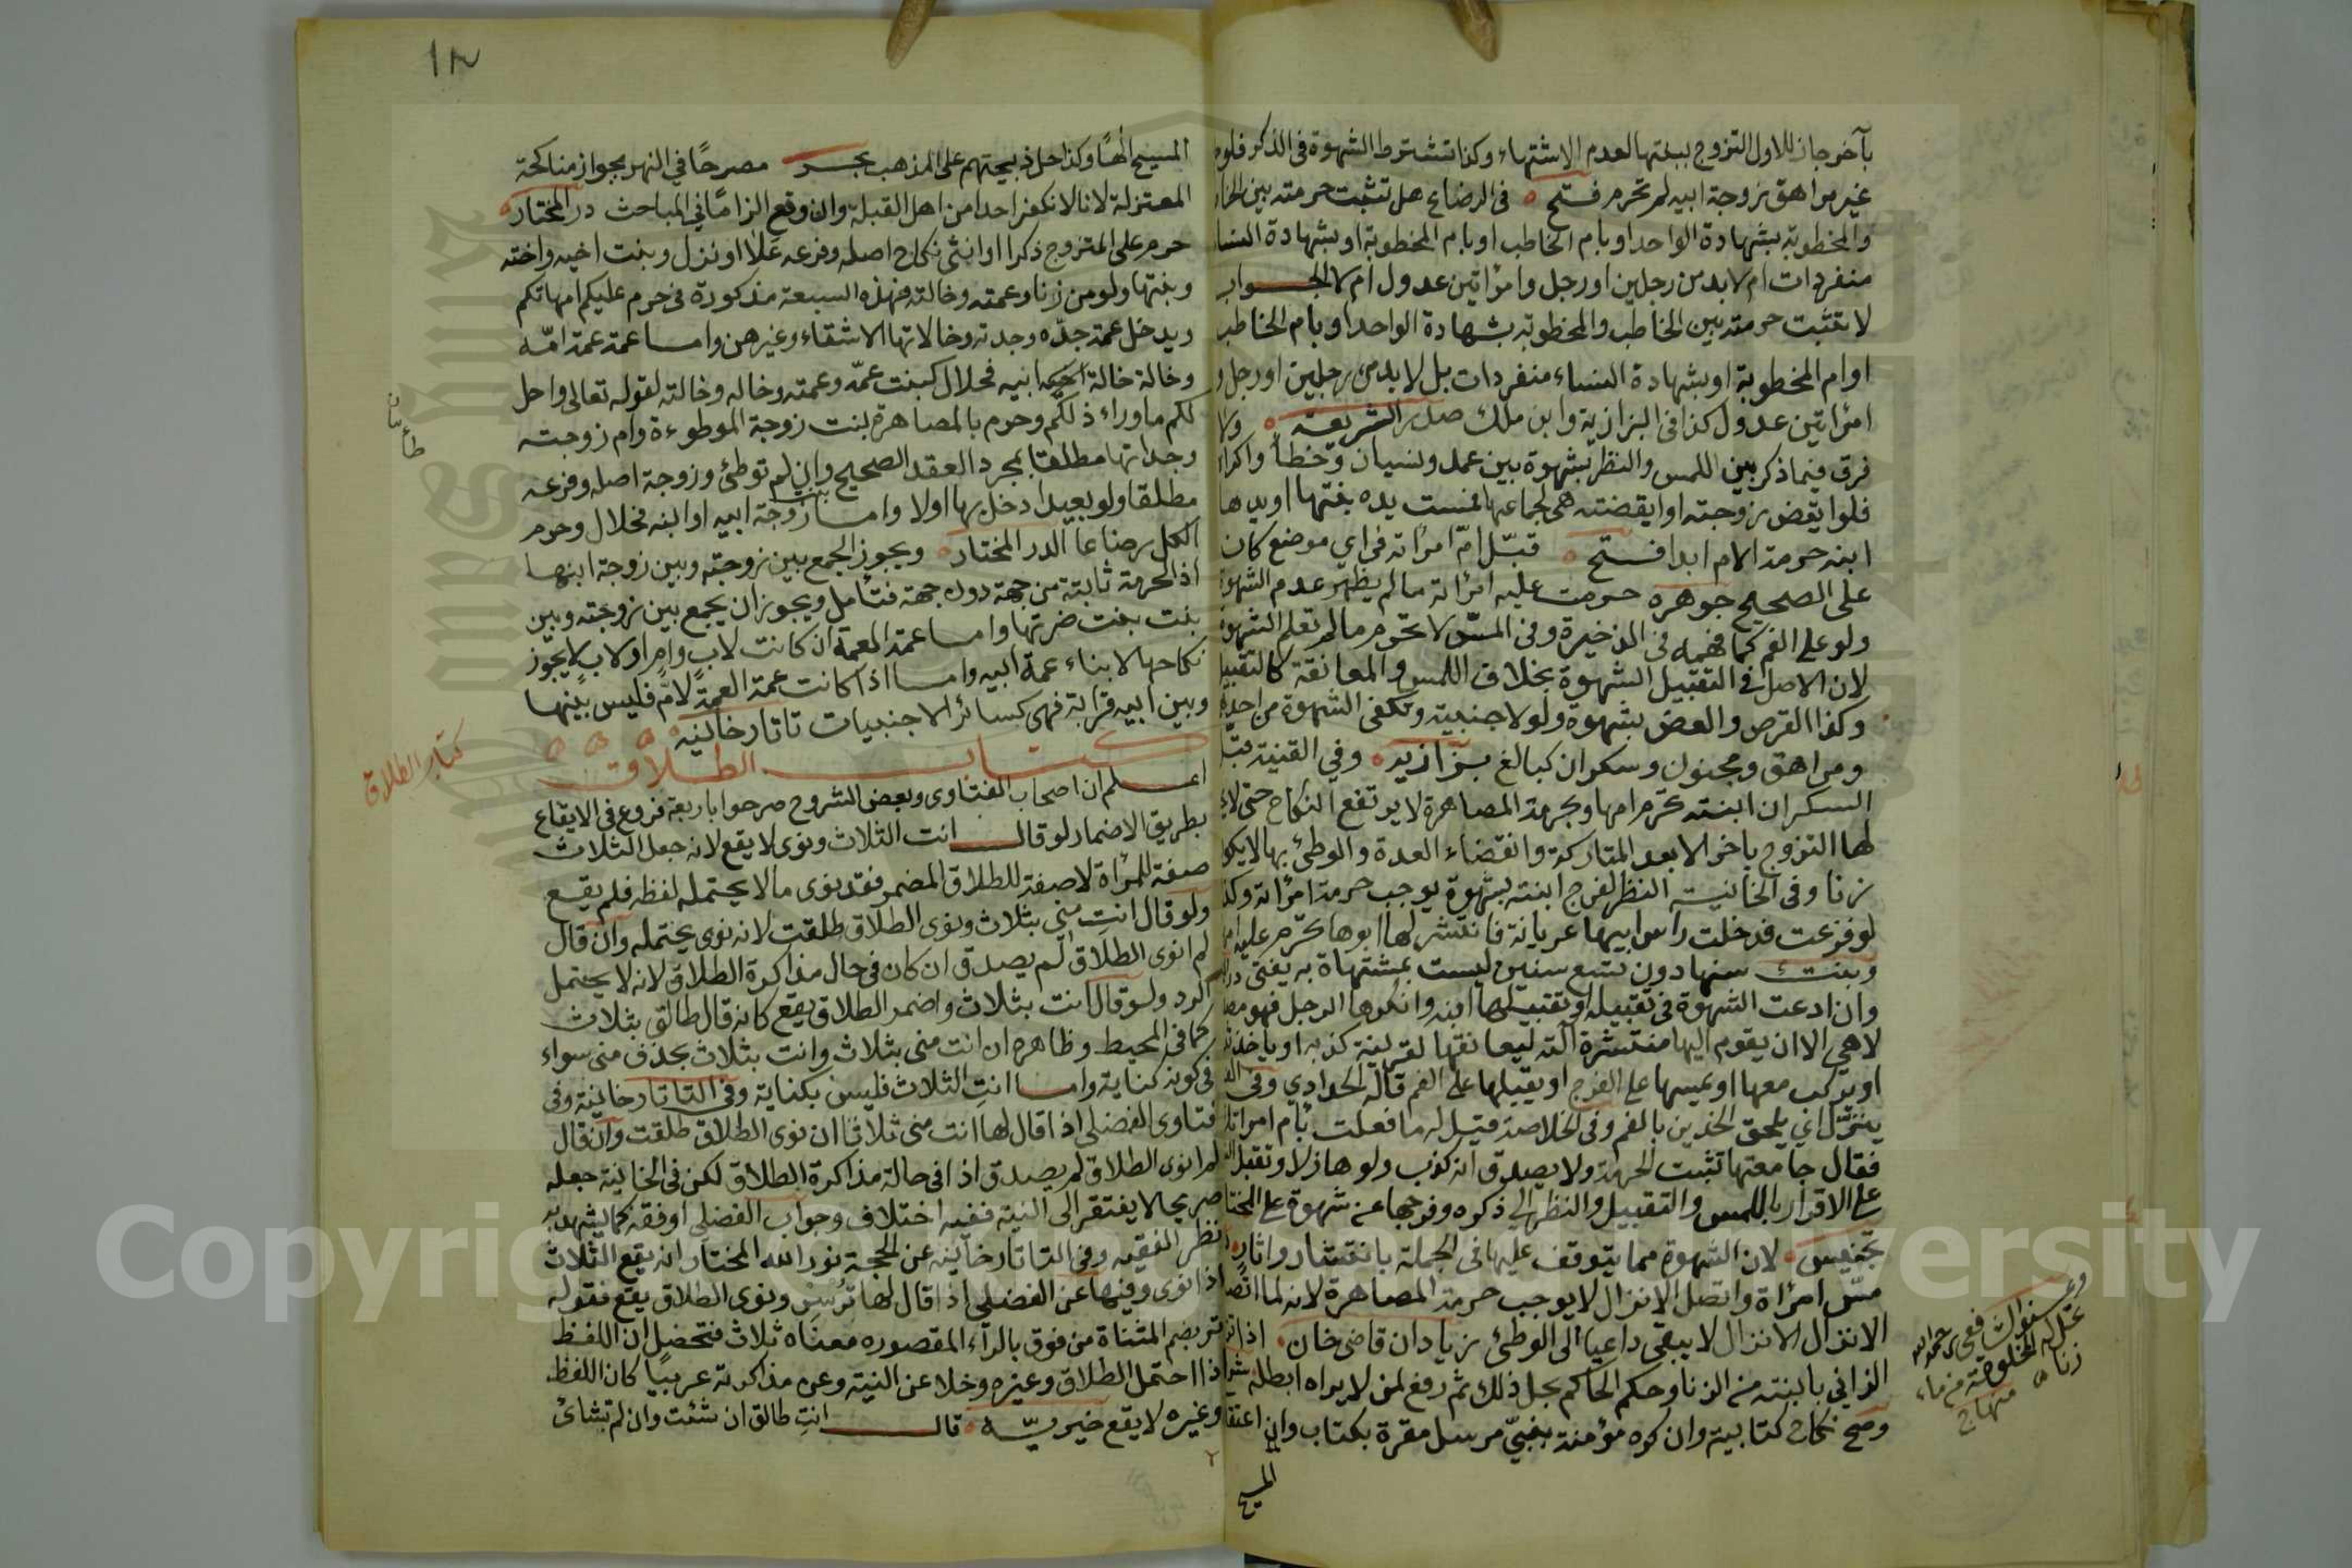 بآخر جاز للاول التزوج ببنتها لعدم الاشتهاء وكذا تشترط الشهوة في الذكر فلو
غير مراهق زوجة ابيه لم تحرم فتح في الرضاع هل تثبت حرمته بين الخا
والمخطوبة بشهادة الواحد او بام الخاطب او بام المخطوبة او بشهادة النسا
منفردات ام لا بد من رجلين او رجل وامرأتين عدول ام لا الجواب
لا تثبت حرمته بين الخاطب والمخطوبة بشهادة الواحد او بام الخاطب
او ام المخطوبة او بشهادة النساء منفردات بل لا بد من رجلين او رجل و
امرأتين عدول كذا في البزازية وابن ملك صدر الشريعة ولا
فرق فيما ذكر بين اللمس والنظر بشهوة بين عمد ونسيان وخطأ واكراه
فلو ايقض زوجته او ايقضته هي لجماعها فمست يده بنتها او يدها
ابنه حرمت الام ابدا فتح قبّل امّ امرأته في اي موضع كان
على الصحيح جوهره حرمت عليه امرأته ما لم يظهر عدم الشهوة
ولو على الفم كما فهمه في الذخيرة وفي المسّ لا تحرم ما لم تعلم الشهوة
لان الاصل في التقبيل الشهوة بخلاف اللمس والمعانقة كالتقبيل
وكذا القرص والعض بشهوة ولو لاجنبية وتكفي الشهوة من احديه
ومراهق ومجنون وسكران كبالغ بزازيه وفي القنية قبّل
السكران ابنته تحرم امها وبحرمة المصاهرة لا يرتفع النكاح حتى لا
لها التزوج باخر الا بعد المتاركة وانقضاء العدة والوطئ بها لا يكو
زنا وفي الخانية النظر لفرج ابنته بشهوة يوجب حرمة امرأته وكذا
لو فزعت فدخلت راس ابيها عريانة فانتشر لها ابوها تحرم عليه ام
وبنت سنها دون تسع سنين ليست بمشتهاة به يفتى در
وان ادعت الشهوة في تقبيله او تقبيلها ابنه وانكرها الرجل فهو مصد
لا هي الا ان يقوم اليها منتشرة آلته ليعانقها لقرينة كذبه او ياخذ ثد
او يركب معها او يمسها على الفرج او يقبلها على الفم قاله الحدادي وفي الف
يتنزّل اي يلحق الخدين بالفم وفي الخلاصة قيل له ما فعلت بأم امرأتك
فقال جامعتها تثبت الحرمة ولا يصدق انه كذب ولو هازلا وتقبل الش
على الاقرار باللمس والتقبيل والنظر الى ذكره وفرجها عن شهوة على المختا
تجنيس لان الشهوة مما يتوقف عليها في الجملة بانتشار واثار
مسّ امرأة واتصل الانزال لا يوجب حرمة المصاهرة لانه لما اتص
الانزال الانزال لا يبقى داعيا الى الوطئ زيادات قاضي خان اذا تز
الزاني بابنته من الزنا وحكم الحاكم بحل ذلك ثم رفع لمن لا يراه ابطله
وصح نكاح كتابية وان كره مؤمنة بنبيّ مرسل مقرة بكتاب وان اعتقد
المسيح
منهاج
١٨
المسيح الٰهًا وكذا حل ذبيحتهم على المذهب بحر مصرحًا في النهر بجواز مناكحة
المعتزلة لانا لا نكفر احدا من اهل القبلة وان وقع الزامًا في المباحث در المختار
حرم على المتزوج ذكرا او انثى نكاح اصله وفرعه علا او نزل وبنت اخيه واخته
وبنتها ولو من زنا وعمته وخالته فهذه السبعة مذكورة في حرم عليكم امهاتكم
ويدخل عمة جدّه وجدته وخالاتها الاشقاء وغيرهن واما عمة عمة امّه
وخالة خالة ابيه فحلال كبنت عمّه وعمته وخاله وخالته لقوله تعالى واحل
لكم ما وراء ذلكم وحرم بالمصاهرة بنت زوجة الموطوءة وام زوجته
وجداتها مطلقا بمجرد العقد الصحيح وان لم توطئ وزوجة اصله وفرعه
مطلقا ولو بعيدا دخل بها او لا واما بنت زوجة ابيه او ابنه فحلال وحرم
الكل رضاعا الدر المختار ويجوز الجمع بين زوجته وبين زوجة ابنها
اذ الحرمة ثابتة من جهة دون جهة فتأمل ويجوز ان يجمع بين زوجته وبين
بنت بنت ضرتها واما عمة العمة ان كانت لاب وام او لاب لا يجوز
نكاحها لابناء عمة ابيه واما اذا كانت عمة العمة لامّ فليس بينها
وبين ابيه قرابة فهي كسائر الاجنبيات تاتارخانيه
كتاب الطلاق
كتاب الطلاق
اعلم ان اصحاب الفتاوى وبعض الشروح صرحوا باربعة فروع في الايقاع
بطريق الاضمار لو قال انت الثلاث ونوى لا يقع لانه جعل الثلاث
صفة للمرأة لا صفة للطلاق المضمر فقد نوى ما لا يحتمله لفظه فلم يقع
ولو قال انتِ مني بثلاث ونوى الطلاق طلقت لانه نوى يحتمله وان قال
لم انوى الطلاق لم يصدق ان كان في حال مذاكرة الطلاق لانه لا يحتمل
الرد ولو قال انت بثلاث واضمر الطلاق يقع كانه قال طالق بثلاث
كما في المحيط وظاهره ان انت مني بثلاث وانت بثلاث بحذف مني سواء
في كونه كناية واما انتِ الثلاث فليس بكناية وفي التاتارخانية وفي
فتاوى الفضلي اذا قال لها انت مني ثلاثا ان نوى الطلاق طلقت وان قال
لم انوى الطلاق لم يصدق اذا في حالة مذاكرة الطلاق لكن في الخانية جعله
صريحا لا يفتقر الى النية ففيه اختلاف وجواب الفضلي اوفقه كما يشهد به
نظر الفقيه وفي التاتارخانية عن الحجة نور الله المختار انه يقع الثلاث
اذا نوى وفيها عن الفضلي اذا قال لها ترسِن ونوى الطلاق يقع فقوله
تر بضم المثناة من فوق بالراء المقصوره معناه ثلاث فتحصل ان اللفظ
اذا احتمل الطلاق وغيره وخلا عن النية وعن مذاكرته عربيًا كان اللفظ
وغيره لا يقع خيريّه قال انتِ طالق ان شئت وان لم تشائ